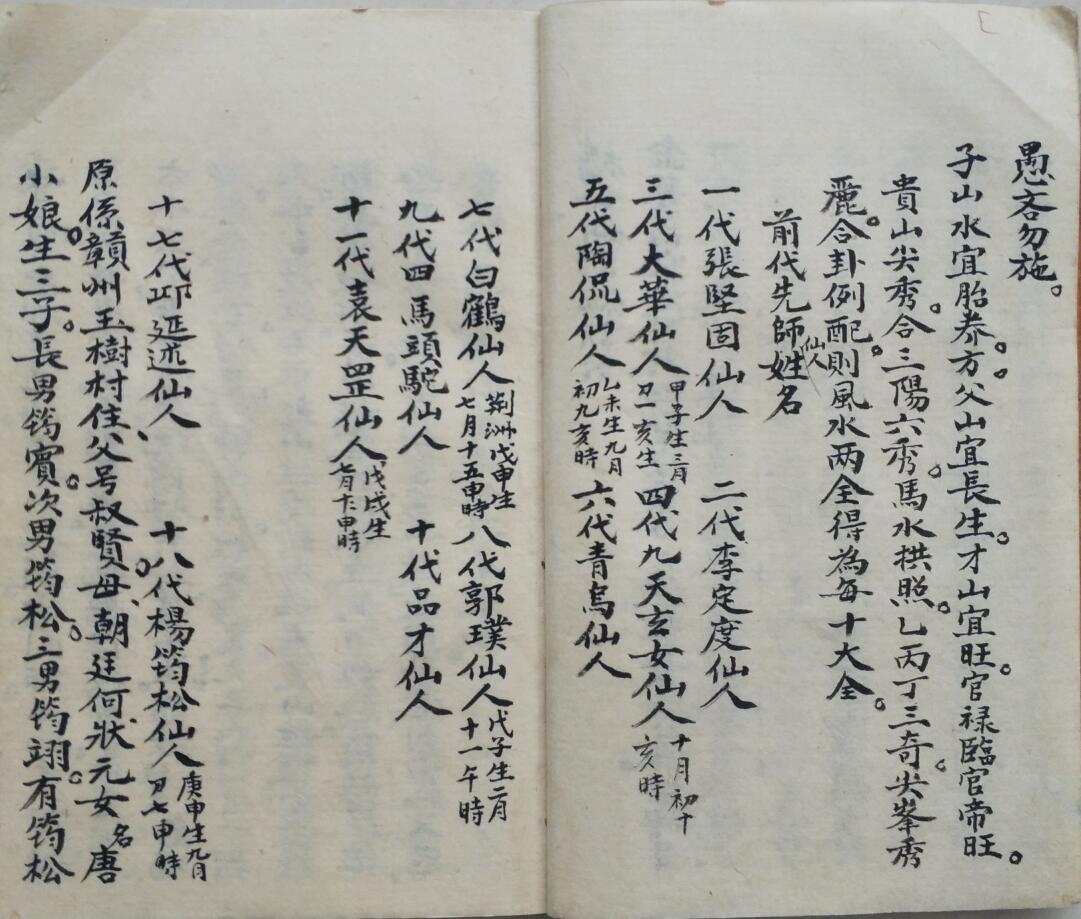 愚吝勿施。
子山水宜胎养方。父山宜長生。才山宜旺。官禄臨官帝旺。
貴山尖秀。合三陽六秀。馬水拱照。乙丙丁三奇。尖峯秀
麗。合卦例配。則風水两全得為每十大全。
前代先師仙人姓名
一代張堅固仙人 二代李定度仙人
三代大華仙人甲子生三月初一亥生 四代九天玄女仙人十月初十亥時
五代陶侃仙人乙未生九月初九亥時 六代青烏仙人
七代白鶴仙人荆洲戊申生七月十五申時 八代郭璞仙人戊子生二月十一午時
九代四馬頭駝仙人 十代品才仙人
十一代袁天罡仙人戊戌生七月十五申時
十七代邱延述仙人、 十八代楊筠松仙人庚申生九月初七申時
原係。贛州玉樹村住父号叔賢。母、朝廷何狀元女名唐
小娘。生三子。長男筠賓。次男筠松。三男筠翊。有筠松